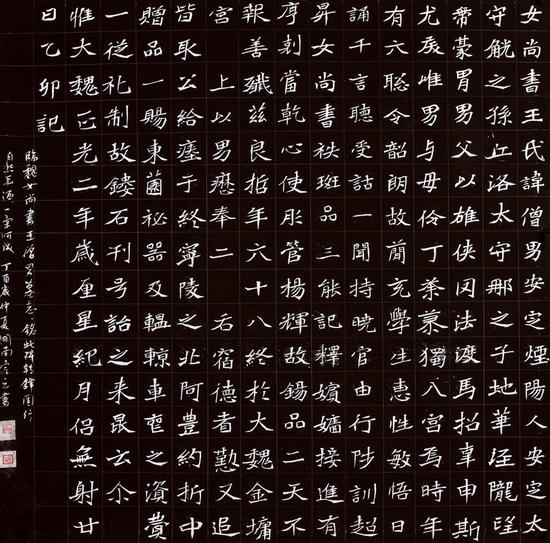 女尚書王氏諱僧男安定煙陽人安定太
守觥之孫丘洛太守那之子地華涇隴望
帶豪胄男父以雄俠罔法渡馬招辜申斯
尤戾唯男与毋伶丁荼蓼獨入宮焉時年
有六聡令韶朗故蕳充學生惠性敏悟日
誦千言聽受詁一聞持曉官由行陟訓超
昇女尚書秩班品三能記釋嬪嬙接進有
序剋當乾心使彤管楊輝故錫品二天不
報善殲茲良哲年六十八終於大魏金墉
宮 上以男歷奉二 后宿德者懃又追
皆取公給瘞于終寧陵之北阿豊約折中
贈品一賜東薗祕器及轀輬車 之資費
一從礼制故鏤石刊号詒之来昆云尒
惟大魏正光二年歲厘星紀月侣無射廿
日乙卯記
臨魏女尚書王僧男墓志銘此碑 鋒圓行
自然 丁酉歲仲夏閩南 書